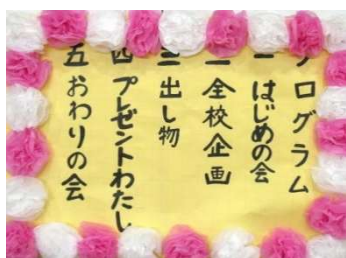 プログラム
一 はじめの会
二 全校企画
三 出し物
四 プレゼントわたし
五 おわりの会